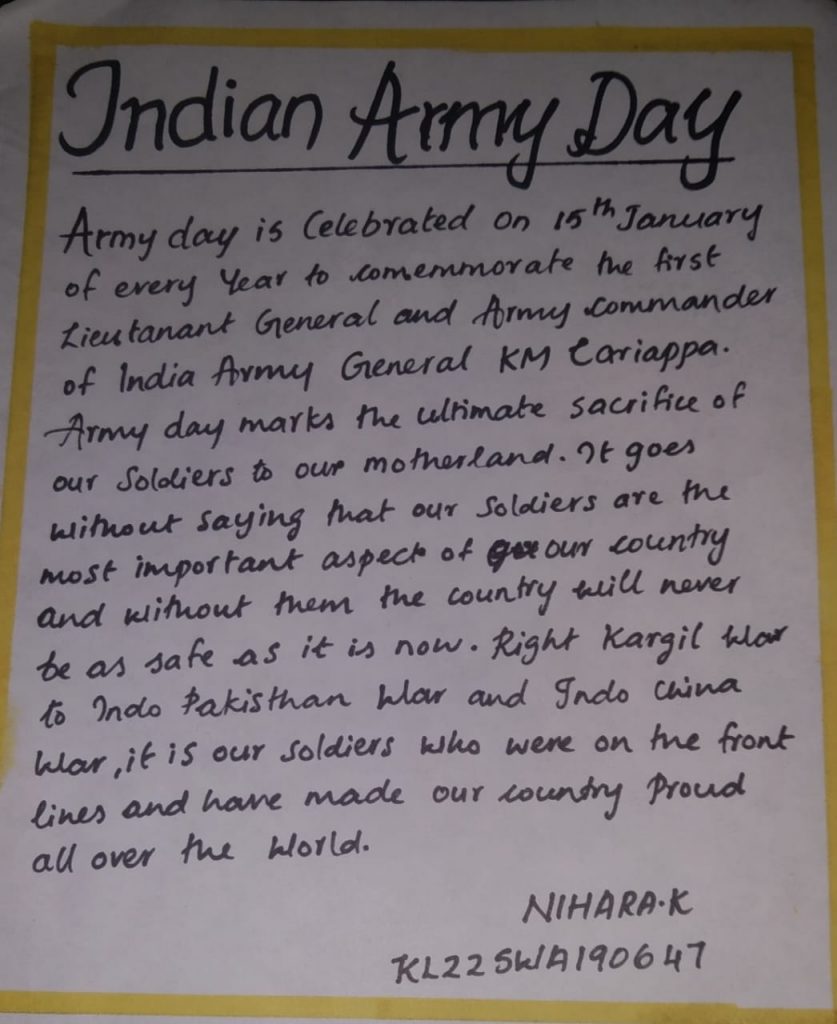 Indian Army Day
Army day is Celebrated on 15th January
of every Year to comemmorate the first
Lieutanant General and Army commander
of India Army General KM Cariappa.
Army day marks the ultimate sacrifice of
our Soldiers to our motherland. It goes
without saying that our soldiers are the
most important aspect of our country
and without them the country will never
be as safe as it is now. Right Kargil War
to Indo Pakisthan War and Indo China
War, it is our soldiers who were on the front
lines and have made our country Proud
all over the World.
NIHARA.K
KL22SWA190647